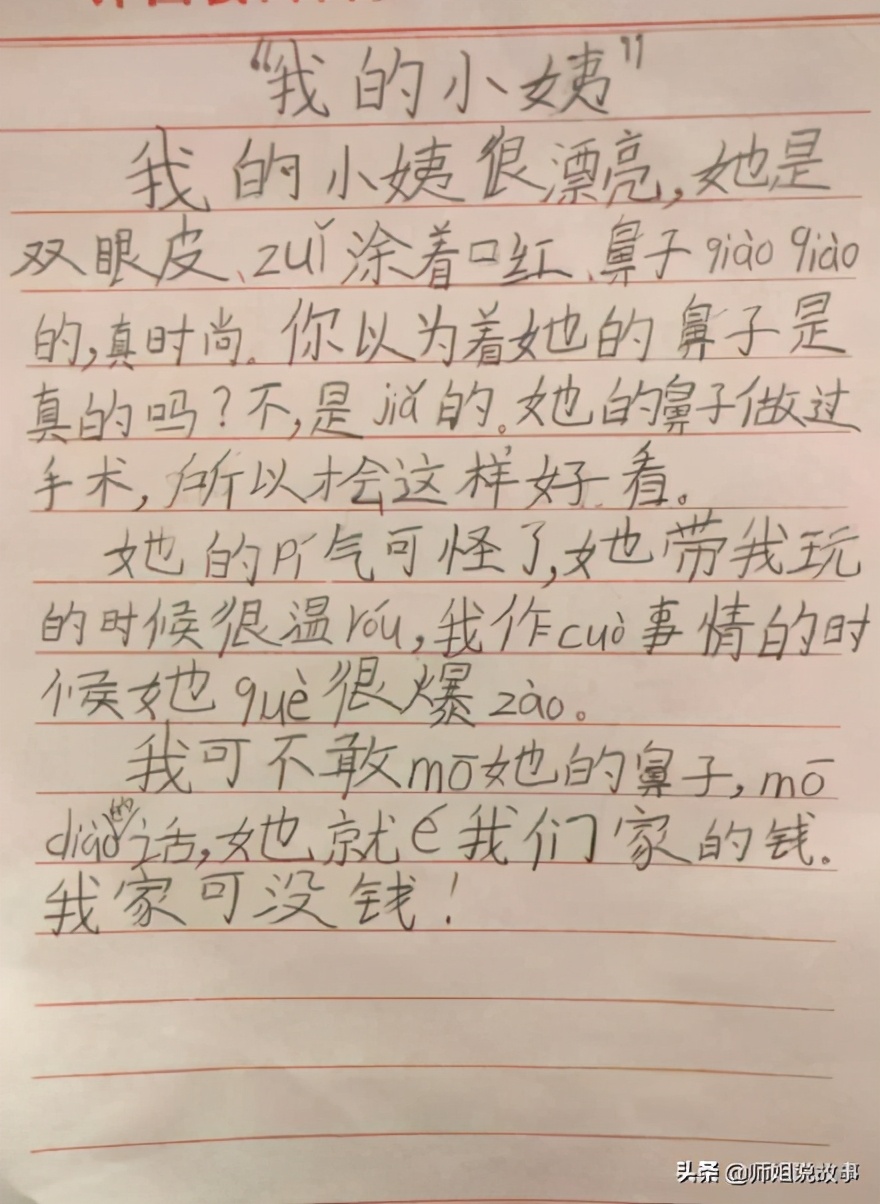 “我的小姨”
我的小姨很漂亮,她是
双眼皮、zuǐ涂着口红、鼻子qiào qiào
的,真时尚。你以为着她的鼻子是
真的吗?不,是jiǎ的。她的鼻子做过
手术,所以才会这样好看。
她的pí气可怪了,她带我玩
的时候很温róu,我作cuò事情的时
候她què很爆zào。
我可不敢mō她的鼻子,mō
diào的话,她就é我们家的钱。
我家可没钱!
头条 @师姐说故事